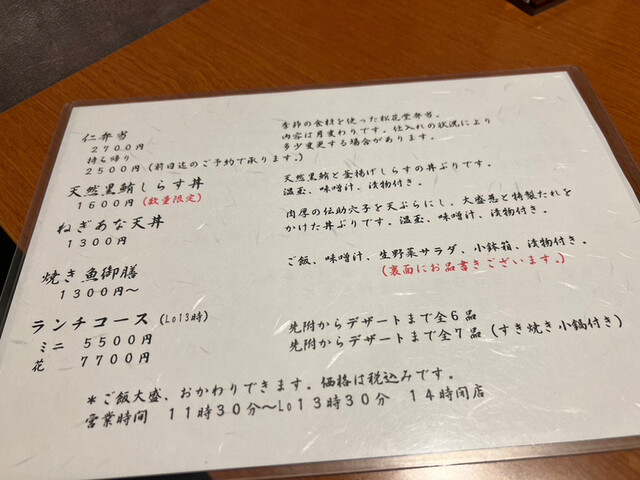 仁弁当
2700円
持ち帰り
2500円（前日迄のご予約で承ります。）
季節の食材を使った松花堂弁当。
内容は月変わりです。仕入れの状況により
多少変更する場合があります。
天然黒鮪しらす丼
1600円（数量限定）
天然黒鮪と釜揚げしらすの丼ぶりです。
温玉、味噌汁、漬物付き。
ねぎあな天丼
1300円
肉厚の伝助穴子を天ぷらにし、大盛葱と特製たれを
かけた丼ぶりです。温玉、味噌汁、漬物付き。
焼き魚御膳
1300円～
ご飯、味噌汁、生野菜サラダ、小鉢箱、漬物付き。
（裏面にお品書きございます。）
ランチコース（Lo13時）
ミニ 5500円
先附からデザートまで全6品
花 7700円
先附からデザートまで全7品（すき焼き小鍋付き）
＊ご飯大盛、おかわりできます。価格は税込みです。
営業時間 11時30分～Lo13時30分 14時閉店